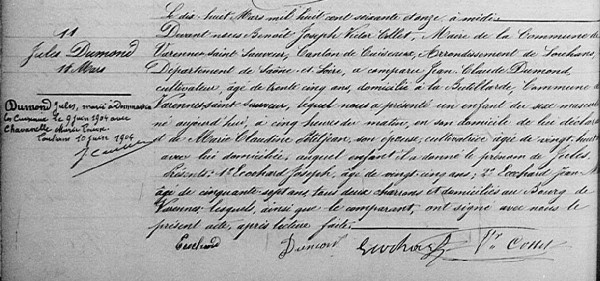 11
Jules Dumond
18 Mars
Dumond Jules, marié à Dommartin
les Cuiseaux le 9 juin 1904 avec
Chavanelle Marie
Louhans 10 juin 1904
Le dix huit Mars mil huit cent soixante onze à midi
Devant nous Benoît Joseph Victor Collet, Maire de la Commune de
Varennes-Saint-Sauveur, Canton de Cuiseaux, Arrondissement de Louhans,
Département de Saône et Loire, a comparu Jean Claude Dumond,
cultivateur, âgé de trente cinq ans, domicilié à la Commune de
Varennes-Saint-Sauveur, lequel nous a présenté un enfant du sexe masculin
né aujourd'hui, à cinq heures du matin, en son domicile de lui déclarant
et de Marie Claudine son épouse, cultivatrice âgée de vingt huit
avec lui domiciliée, auquel enfant il a donné le prénom de Jules
Présents: 1° Eochard Joseph, âgé de vingt cinq ans; 2° Eochard Jean
âgé de cinquante sept ans, tous deux charrons et domiciliés au Bourg de
Varennes lesquels, ainsi que le comparant, ont signé avec nous le
présent acte, après lecture faite.
Eochard Dumont Eochard Vr Collet